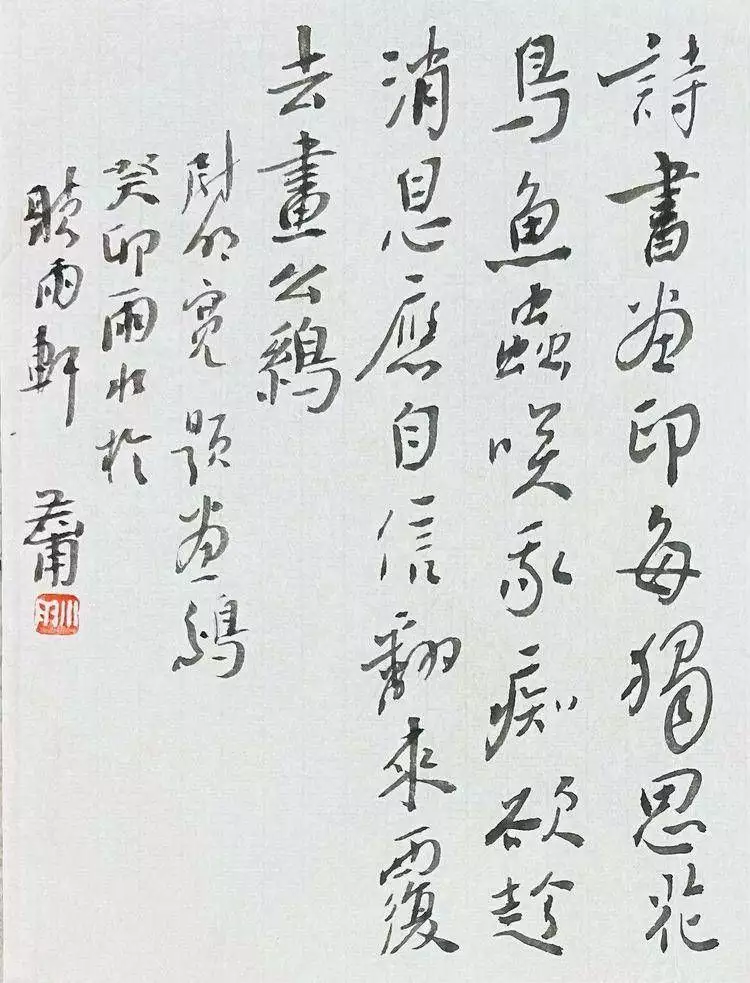 詩書畫印每獨思花
鳥魚蟲咲我痴欲趁
消息應自信翻來覆
去畫公鷄
尉明寬題畫鷄
癸卯雨水於
聽雨軒